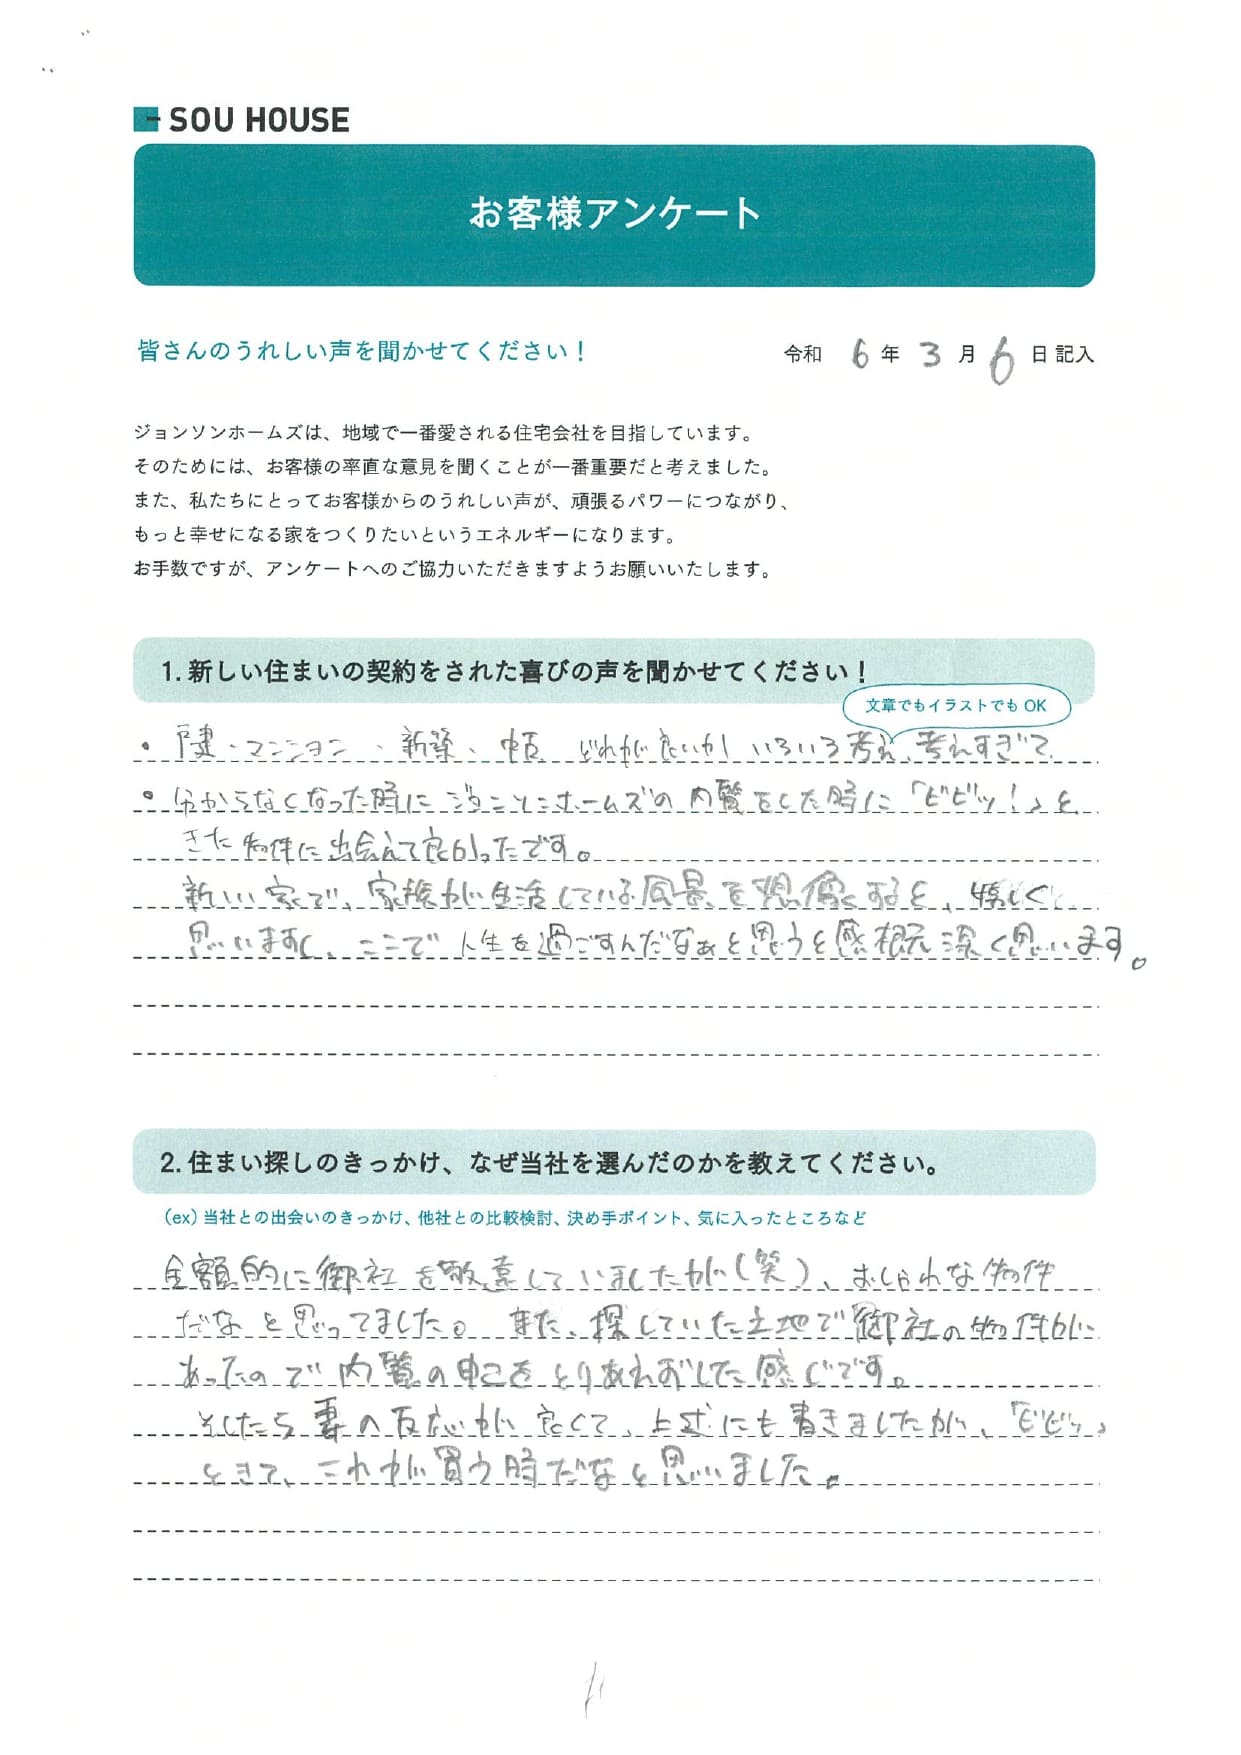 SOU HOUSE
お客様アンケート
皆さんのうれしい声を聞かせてください！
令和 6 年 3 月 6 日 記入
ジョンソンホームズは、地域で一番愛される住宅会社を目指しています。
そのためには、お客様の率直な意見を聞くことが一番重要だと考えました。
また、私たちにとってお客様からのうれしい声が、頑張るパワーにつながり、
もっと幸せになる家をつくりたいというエネルギーになります。
お手数ですが、アンケートへのご協力いただきますようお願いいたします。
1. 新しい住まいの契約をされた喜びの声を聞かせてください！
文章でもイラストでも OK
・戸建・マンション、新築、中古 どれが良いか いろいろ考え、考えすぎて
・分からなくなった時に ジョンソンホームズの内覧をした時に「ビビッ！」と
きた物件に出会えて良かったです。
新しい家で、家族が生活している風景を想像すると、嬉しく
思いますし、ここで人生を過ごすんだなぁと思うと感慨深く思います。
2. 住まい探しのきっかけ、なぜ当社を選んだのかを教えてください。
（ex）当社との出会いのきっかけ、他社との比較検討、決め手ポイント、気に入ったところなど
金額的に御社を敬遠していましたが（笑）、おしゃれな物件
だなと思ってました。また、探していた土地で御社の物件が
あったので内覧の申込をとりあえずした感じです。
そしたら妻の反応が良くて、上述にも書きましたが、「ビビッ」
ときて、これが買う時だなと思いました。